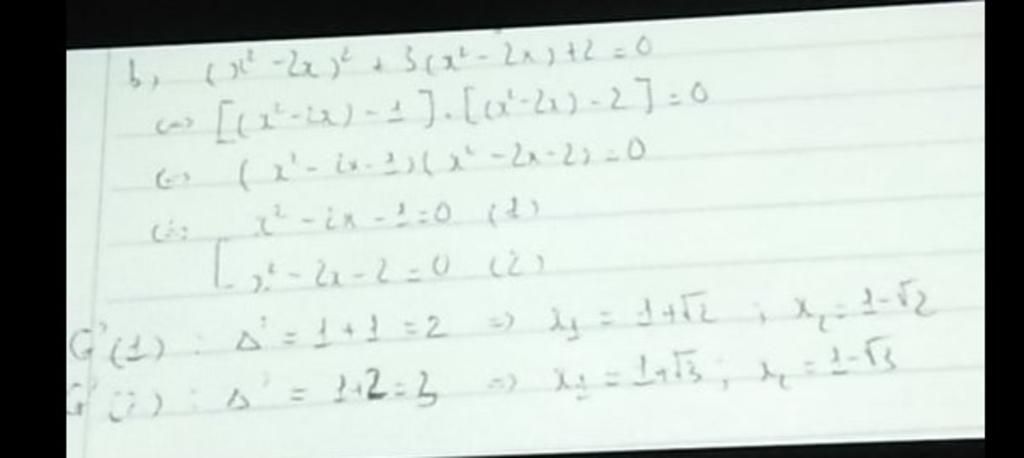 b, (x² - 2x)² + 3(x² - 2x) + 2 = 0
<=> [(x² - 2x) - 1] . [(x² - 2x) - 2] = 0
<=> (x² - 2x - 1)(x² - 2x - 2) = 0
<=> [ x² - 2x - 1 = 0 (1)
x² - 2x - 2 = 0 (2)
G'(1) : Δ' = 1 + 1 = 2 => x₁ = 1 + √2 ; x₂ = 1 - √2
G'(2) : Δ' = 1 + 2 = 3 => x₁ = 1 + √3 ; x₂ = 1 - √3